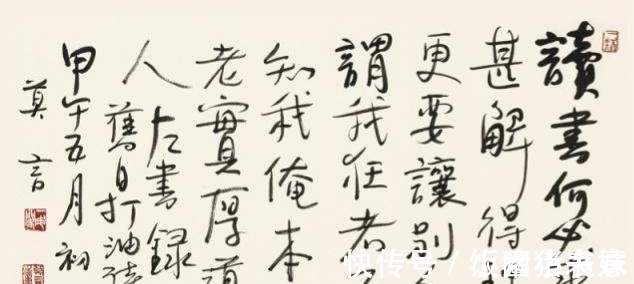 讀書何必
甚解得
更要讓別
謂我狂者
知我俺本
老實厚道
人左書錄
舊日打油詩
甲午五月初
莫言
快传号 /